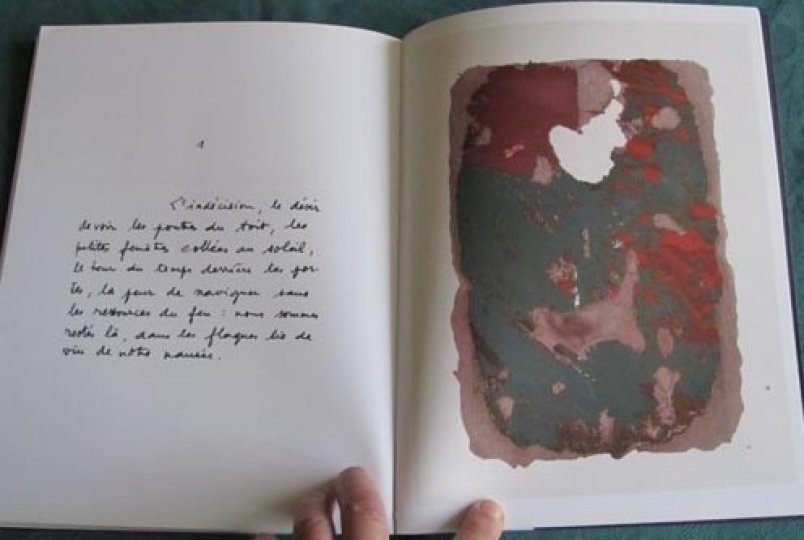 1
L'indécision, le désir
de voir les pontes du toit, les
petites fenêtres collées au soleil,
le tour du temps derrière les por
tes, la peur de naviguer sans
les ressources du feu : nous sommes
restés là, dans les flaques lie de
vin de notre nausée.